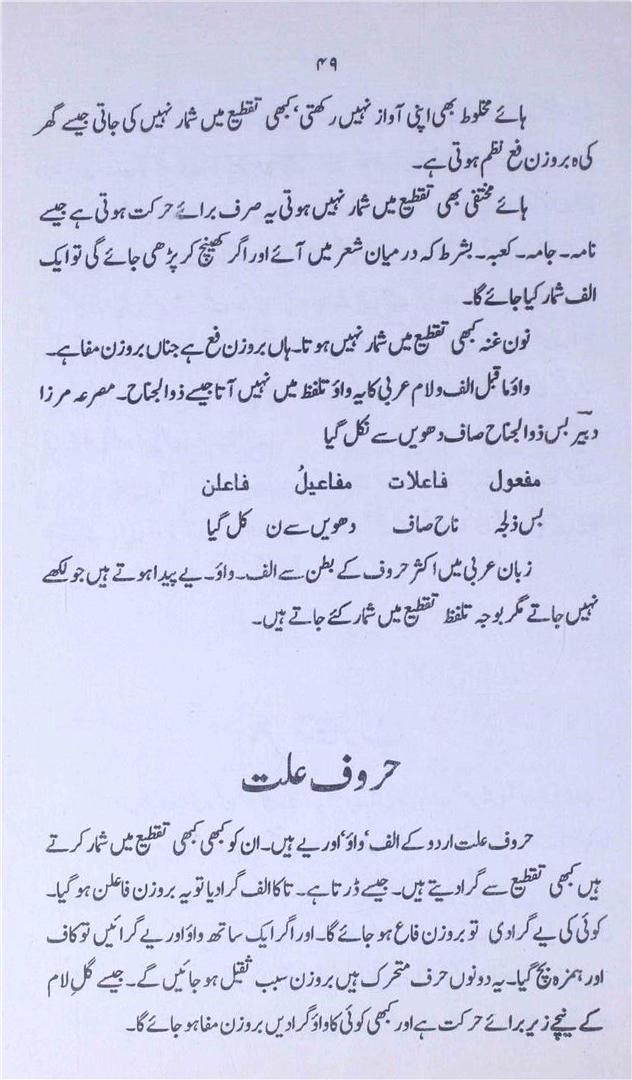 ۴۹
ہائے مخلوط بھی اپنی آواز نہیں رکھتی، کبھی تقطیع میں شمار نہیں کی جاتی جیسے گھر
کی ہ بروزن فع نظم ہوتی ہے۔
ہائے مختفی بھی تقطیع میں شمار نہیں ہوتی یہ صرف برائے حرکت ہوتی ہے جیسے
نامہ۔ جامہ۔ کعبہ۔ بشرط کہ درمیان شعر میں آئے اور اگر کھینچ کر پڑھی جائے گی تو ایک
الف شمار کیا جائے گا۔
نون غنہ کبھی تقطیع میں شمار نہیں ہوتا۔ ہاں بروزن فع ہے جناں بروزن مفا ہے۔
واؤ ما قبل الف و لام عربی کا یہ واؤ تلفظ میں نہیں آتا جیسے ذوالجناح۔ مصرعہ مرزا
دبیر بس ذوالجناح صاف دھویں سے نکل گیا
مفعول فاعلات مفاعیلُ فاعلن
بس ذلجہ ناح صاف دھویں سے ن کل گیا
زبان عربی میں اکثر حروف کے بطن سے الف۔ واؤ۔ یے پیدا ہوتے ہیں جو لکھے
نہیں جاتے مگر بوجہ تلفظ تقطیع میں شمار کئے جاتے ہیں۔
حروف علت
حروف علت اردو کے الف، واؤ، اور یے ہیں۔ ان کو کبھی کبھی تقطیع میں شمار کرتے
ہیں کبھی تقطیع سے گرا دیتے ہیں۔ جیسے ڈرتا ہے۔ تا کا الف گرا دیا تو یہ بروزن فاعلن ہو گیا۔
کوئی کی یے گرا دی تو بروزن فاع ہو جائے گا۔ اور اگر ایک ساتھ واؤ اور یے گرائیں تو کاف
اور ہمزہ بچ گیا۔ یہ دونوں حرف متحرک ہیں بروزن سبب ثقیل ہو جائیں گے۔ جیسے گلِ لام
کے نیچے زیر برائے حرکت ہے اور کبھی کوئی کا واؤ گرا دیں بروزن مفا ہو جائے گا۔